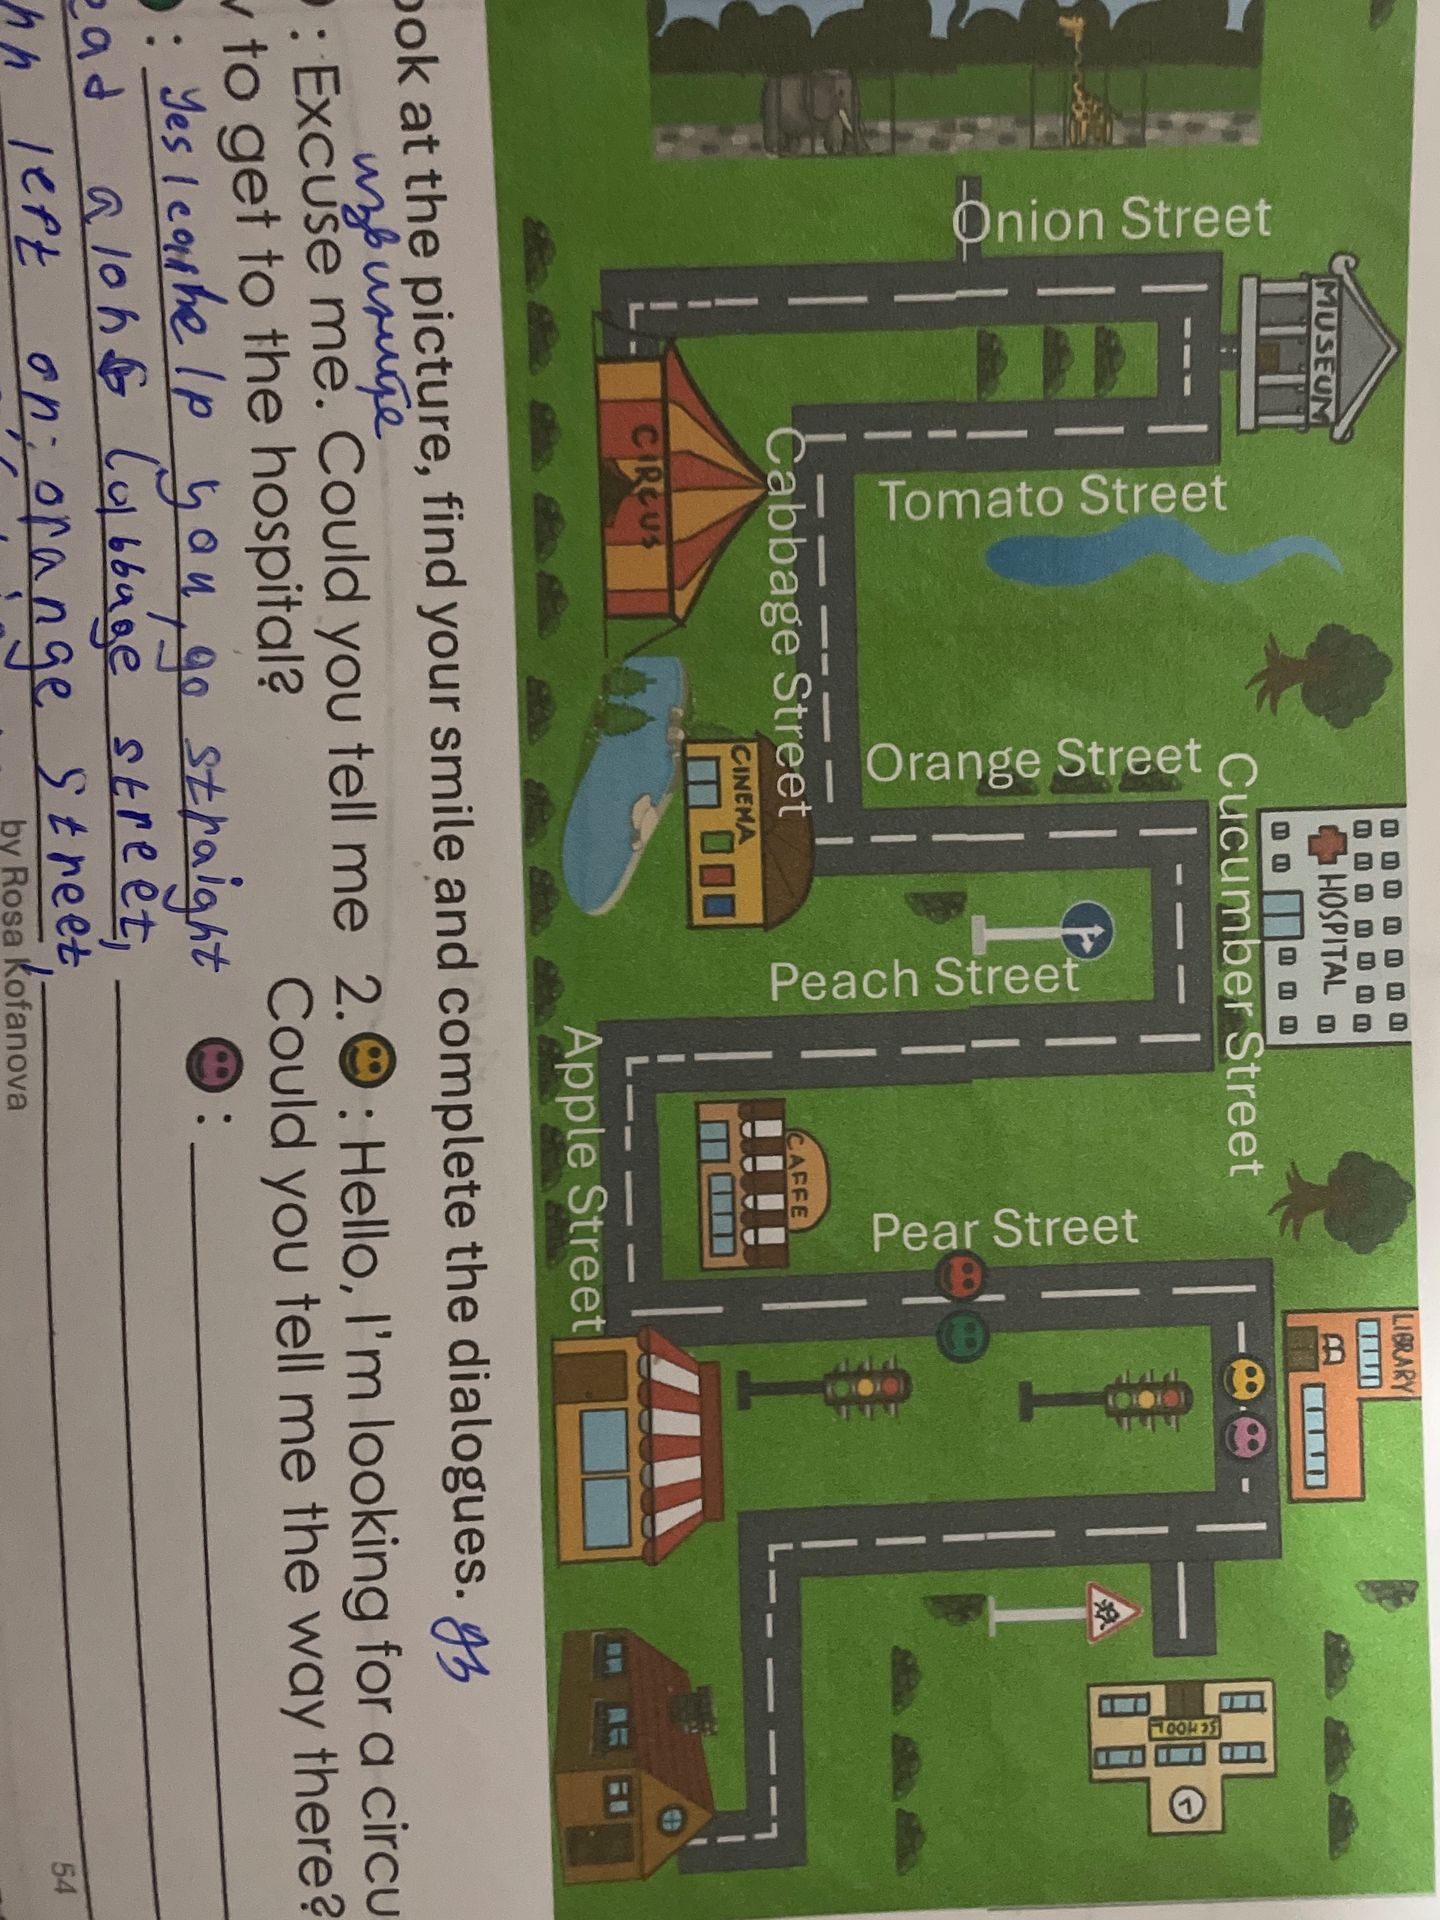 LIBRARY
MUSEUM
HOSPITAL
Cucumber Street
SCHOOL
Onion Street
Tomato Street
Orange Street
Peach Street
Pear Street
Cabbage Street
CAFFE
CINEMA
CIRCUS
Apple Street
ook at the picture, find your smile and complete the dialogues. дз
извините
: Excuse me. Could you tell me
to get to the hospital?
: Yes I can help you, go straight
ead along Cabbage street,
left on orange street,
2. : Hello, I'm looking for a circu
Could you tell me the way there?
:
by Rosa Kofanova
54